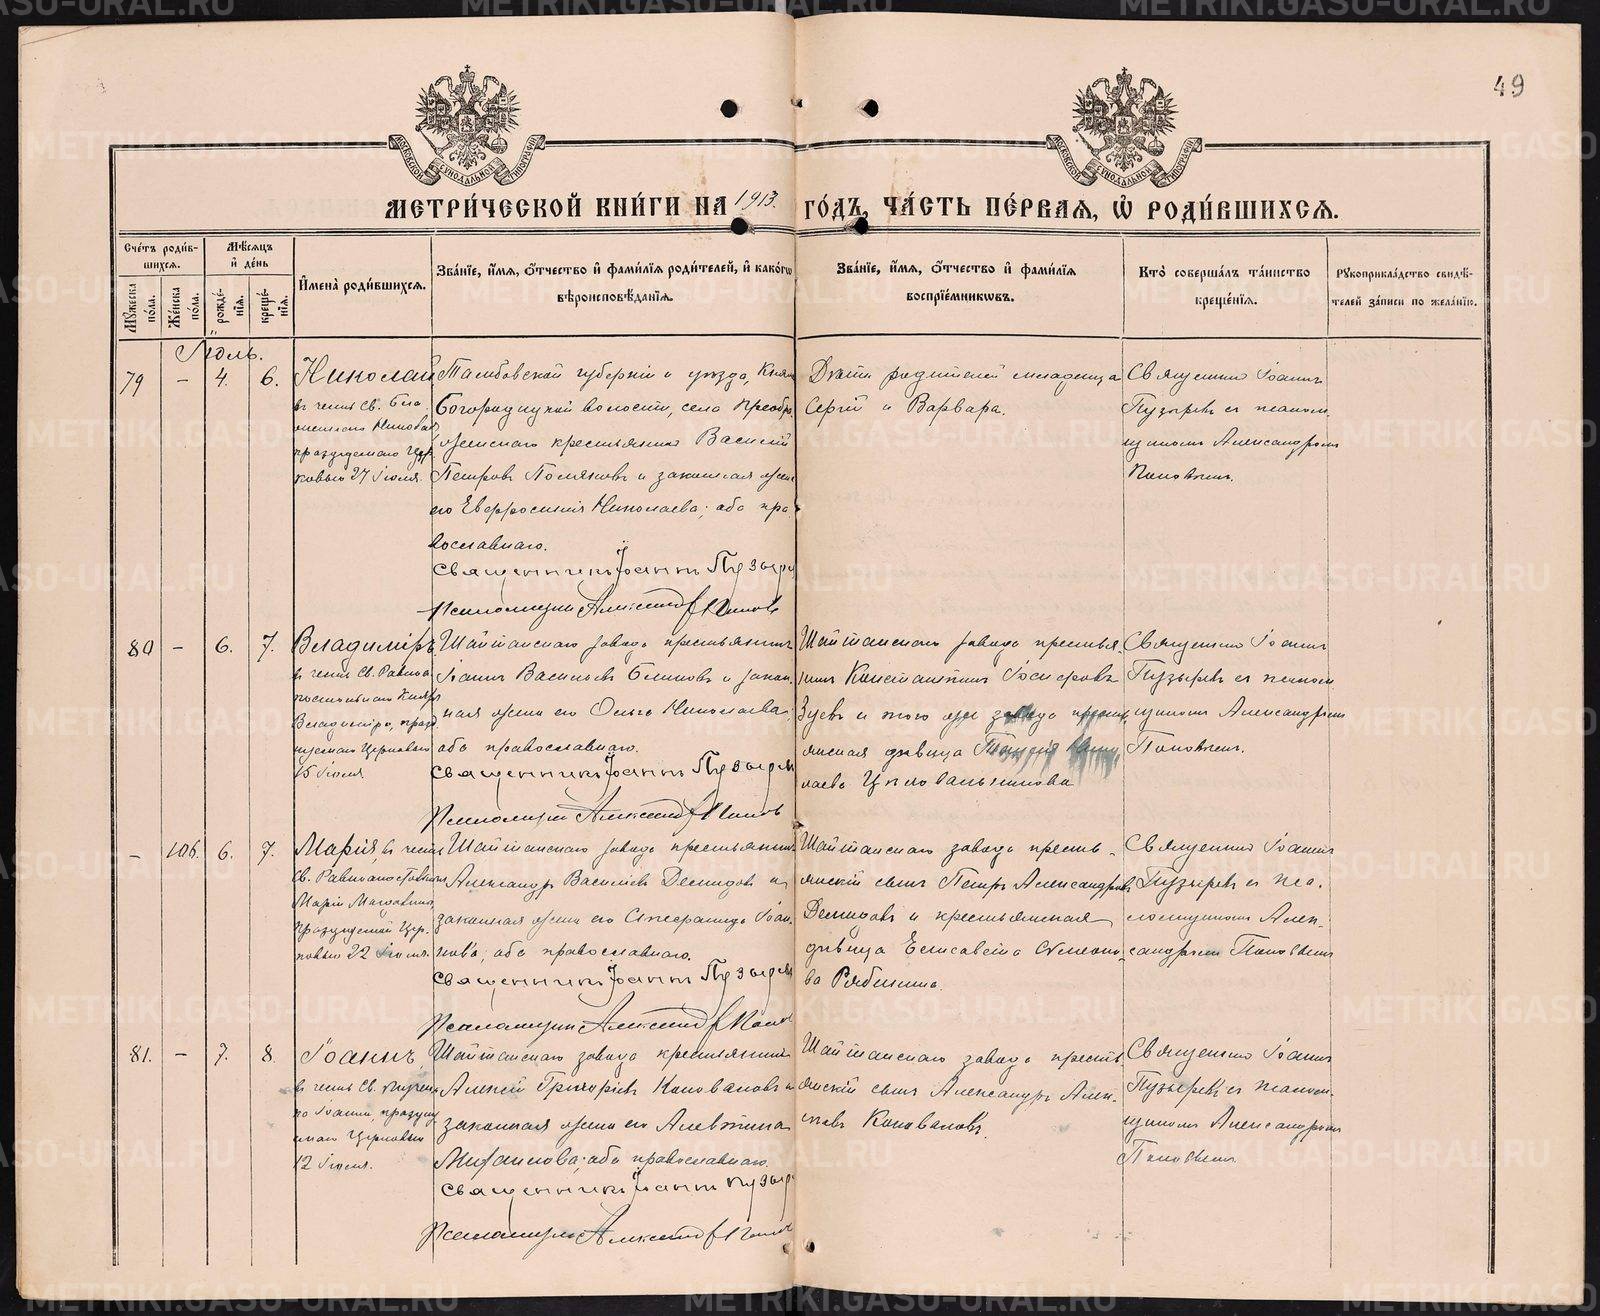 49
МЕТРИ́ЧЕСКОЙ КНИ́ГИ НА 1913 ГО́ДЪ, ЧА́СТЬ ПЕ́РВАЯ, Ѡ РОДИ́ВШИХСЯ.
Счетъ роди́вшихся.
Мꙋжеска по́ла.
Же́нска по́ла.
Мѣсяцъ и де́нь
рожде́нїя.
креще́нїя.
Имена̀ роди́вшихся.
Зва́нїе, и́мя, о́тчество и фами́лїя роди́телей, и како́гѡ вѣроисповѣ́данїя.
Зва́нїе, и́мя, о́тчество и фами́лїя воспрїе́мникѡвъ.
Кто̀ соверша́лъ та́инство креще́нїя.
Рꙋкоприкла́дство свидѣ́телей за́писи по жела́нїю.
Іюль.
79
–
4.
6.
Николай
въ честь Св. Бла
Николая
празднуемаго Цер
ковью 27 Іюля.
Тамбовской губерніи и уѣзда, Княже
Богородицкой волости, села Преобра
женскаго крестьянинъ Василій
Петровъ Поляковъ и законная жена
его Евфросинія Николаева; оба пра
вославнаго.
Священникъ Іоаннъ Пузыре
Псаломщикъ Александръ Поповъ
Дѣти родителей младенца
Сергій и Варвара.
Священникъ Іоаннъ
Пузыревъ съ псалом
щикомъ Александромъ
Поповымъ.
80
–
6.
7.
Владиміръ
въ честь Св. Равно
апостольнаго Князя
Владиміра, празд
нуемаго Церковью
15 Іюля
Шайтанскаго завода крестьянинъ
Іоаннъ Васильевъ Блиновъ и закон
ная жена его Ольга Николаева;
оба православнаго.
Священникъ Іоаннъ Пузырев
Псаломщикъ Александръ Поповъ
Шайтанскаго завода крестья
нинъ Константинъ Іосифовъ
Зуевъ и того же завода кресть
янская дѣвица
лаева Цѣловальникова
Священникъ Іоаннъ
Пузыревъ съ псалом
щикомъ Александромъ
Поповымъ.
–
106.
6.
7.
Марія, въ честь
Св. Равноапостольныя
Маріи Магдалины
празднуемой Цер
ковью 22 Іюля.
Шайтанскаго завода крестьянинъ
Александръ Васильевъ Демидовъ и
законная жена его Стефанида Іоан
нова; оба православнаго.
Священникъ Іоаннъ Пузырев
Псаломщикъ Александръ Попов
Шайтанскаго завода кресть-
янскій сынъ Петръ Александровъ
Демидовъ и крестьянская
дѣвица Елисавета Симеоно-
ва Рябинина.
Священникъ Іоаннъ
Пузыревъ съ пса-
ломщикомъ Алек-
сандромъ Поповымъ
81.
–
7.
8.
Іоаннъ
въ честь Св. мучени
ка Іоанна, праздну
емаго Церковью
12 Іюля.
Шайтанскаго завода крестьянинъ
Алексій Григорьевъ Коноваловъ и
законная жена его Алевтина
Михаилова; оба православнаго.
Священникъ Іоаннъ Пузыр
Псаломщикъ Александръ Попов
Шайтанскаго завода кресть
янскій сынъ Александръ Алек-
сѣевъ Коноваловъ.
Священникъ Іоаннъ
Пузыревъ съ псалом-
щикомъ Александромъ
Поповымъ.
METRIKI.GASO-URAL.RU